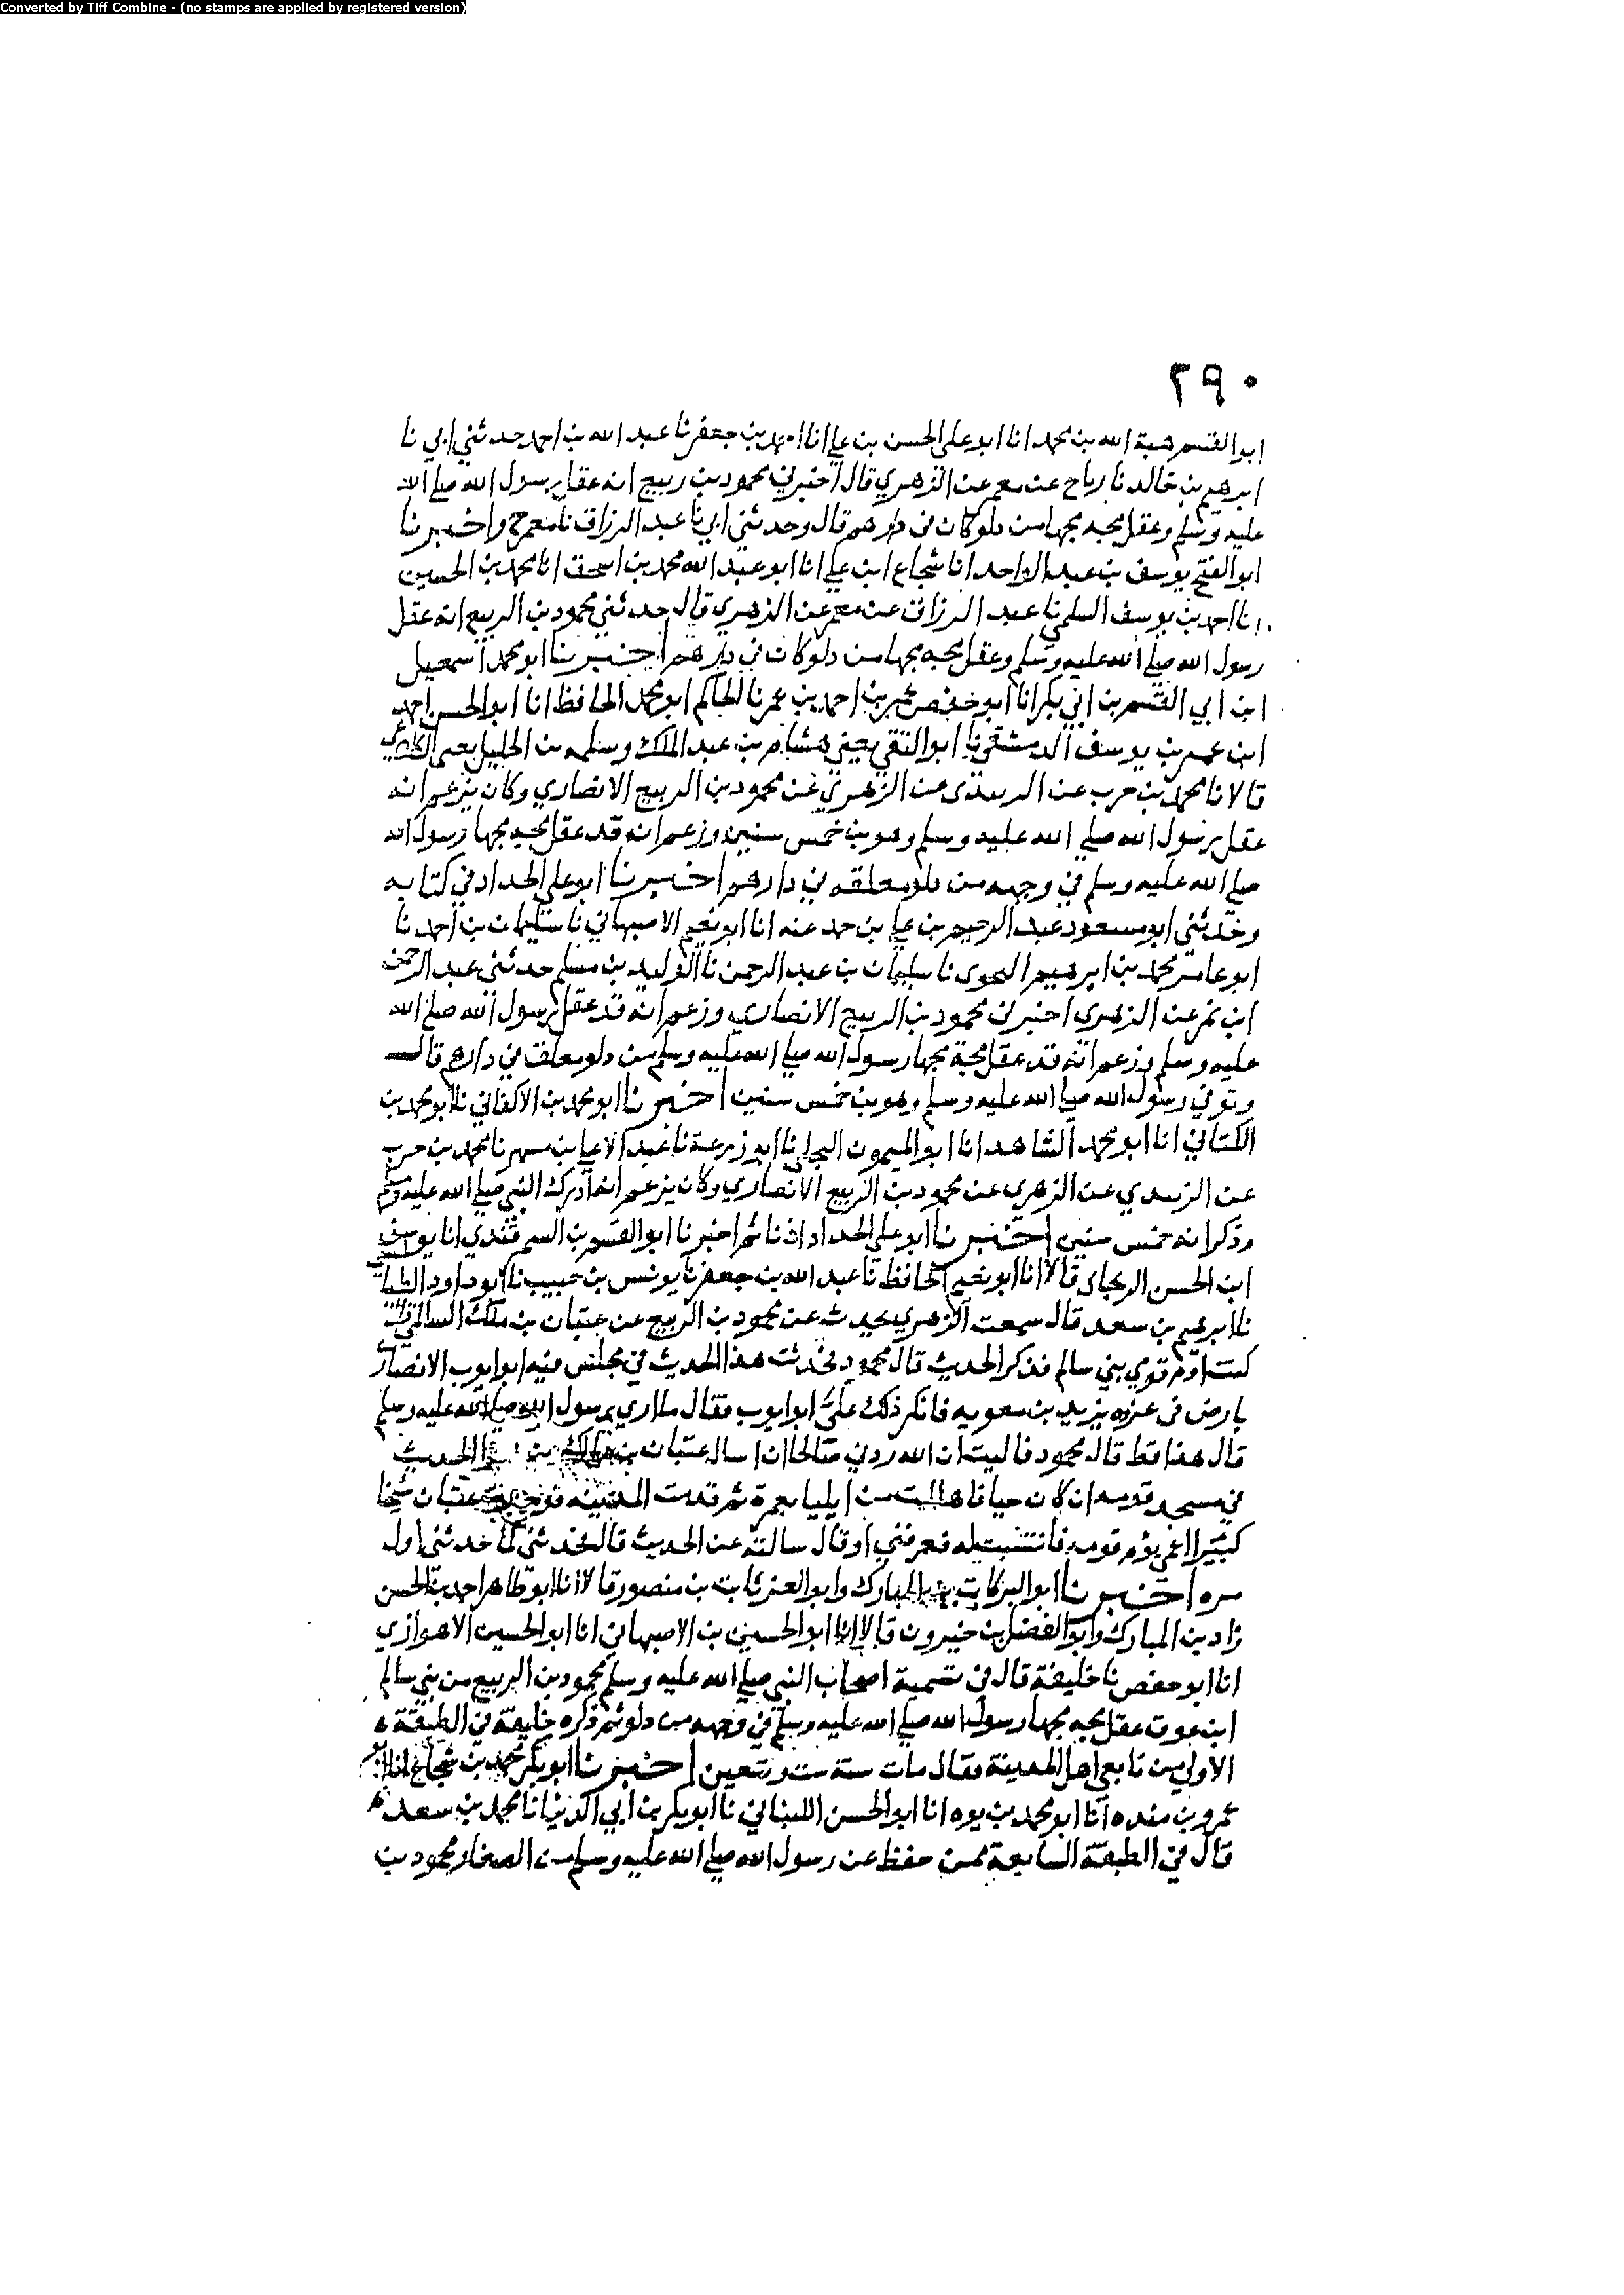 Converted by Tiff Combine - (no stamps are applied by registered version)
٢٩٠
ابو القسم هبة الله بن محمد انا ابو علي الحسن بن علي انا احمد بن جعفر نا عبد الله بن احمد حدثني ابي نا
ابرهيم بن خالد نا رباح عن معمر عن الزهري قال اخبرني محمود بن ربيع انه عقل رسول الله صلي الله
عليه وسلم وعقل مجه مجها من دلو كان في دارهم قال وحدثني ابي نا عبد الرزاق نا معمر ح واخبرنا
ابو الفتح يوسف بن عبد الواحد انا شجاع ابن علي انا ابو عبد الله محمد بن اسحق انا محمد بن الحسين
انا احمد بن يوسف السلمي نا عبد الرزاق عن معمر عن الزهري قال حدثني محمود بن الربيع انه عقل
رسول الله صلي الله عليه وسلم وعقل مجه مجها من دلو كان في دارهم اخبرنا ابو محمد اسمعيل
ابن ابي القسم بن ابي بكر انا ابو حفص عمر بن احمد بن عمر نا الحاكم ابو محمد الحافظ انا ابو الحسن احمد
ابن عمير بن يوسف الدمشقي نا ابو التقي يعني هشام بن عبد الملك وسلمه بن الخليل يعني الكلاعي
قالا نا محمد بن حرب عن الزبيدي عن الزهري عن محمود بن الربيع الانصاري وكان يزعم انه
عقل رسول الله صلي الله عليه وسلم وهو بن خمس سنين وزعم انه قد عقل مجه مجها رسول الله
صلي الله عليه وسلم في وجهه من دلو معلقه في دارهم اخبرنا ابو علي الحداد في كتابه
وحدثني ابو مسعود عبد الرحيم بن علي بن حمد عنه انا ابو نعيم الاصبهاني نا سليمان بن احمد نا
ابو عامر محمد بن ابرهيم النحوي نا سليمان بن عبد الرحمن نا الوليد بن مسلم حدثني عبد الرحمن
ابن نمر عن الزهري اخبرني محمود بن الربيع الانصاري وزعم انه قد عقل رسول الله صلي الله
عليه وسلم وزعم انه قد عقل مجة مجها رسول الله صلي الله عليه وسلم من دلو معلق في دارهم قال
وتوفي رسول الله صلي الله عليه وسلم وهو بن خمس سنين اخبرنا ابو محمد بن الاكفاني نا ابو محمد بن
الكتاني انا ابو محمد الشاهد انا ابو الميمون البجلي نا ابو زرعة نا عبد الاعلي بن مسهر نا محمد بن حرب
عن الزبيدي عن الزهري عن محمود بن الربيع الانصاري وكان يزعم انه ادرك النبي صلي الله عليه وسلم
وذكر انه خمس سنين اخبرنا ابو علي الحداد اذنا ثم اخبرنا ابو القسم بن السمرقندي انا يوسف
ابن الحسن قالا انا ابو نعيم الحافظ نا عبد الله بن جعفر نا يونس بن حبيب نا ابو داود الطيالسي
نا ابرهيم بن سعد قال سمعت الزهري يحدث عن محمود بن الربيع عن عتبان بن ملك السالمي قال
كنت اؤم قومي بني سالم فذكر الحديث قال محمود فحدثت هذا الحديث في مجلس فيه ابو ايوب الانصاري
بارض في غزوه يزيد بن معويه فانكر ذلك علي ابو ايوب فقال ما اري رسول الله صلي الله عليه وسلم
قال هذا قط قال محمود فاليت ان الله ردني سالما ان اسال عتبان بن مالك عن الحديث
في مسجد قومه ان كان حيا فاهللت من ايليا بعمرة ثم قدمت المدينه عتبان شيخا
كبيرا اعمي يؤم قومه فانتسبت له فعرفني او قال سالته عن الحديث قال فحدثني كما حدثني اول
مره اخبرنا ابو البركات بن المبارك وابو العز ثابت بن منصور قالا انا ابو طاهر احمد بن الحسن
زاد بن المبارك وابو الفضل بن خيرون قالا انا ابو الحسين بن الاصبهاني انا ابو الحسين الاهوازي
انا ابو حفص نا خليفة قال في تسمية اصحاب النبي صلي الله عليه وسلم محمود بن الربيع من بني سالم
ابن عوف عقل مجه مجها رسول الله صلي الله عليه وسلم في وجهه من دلو ثم ذكره خليفة في الطبقة
الاولي من تابعي اهل المدينة فقال مات سنة ست وتسعين اخبرنا ابو بكر محمد بن شجاع انا ابو
عمرو بن منده انا ابو محمد بن يوه انا ابو الحسن اللنباني نا ابو بكر بن ابي الدنيا نا محمد بن سعد
قال في الطبقة السابعة ممن حفظ عن رسول الله صلي الله عليه وسلم من الصغار محمود بن